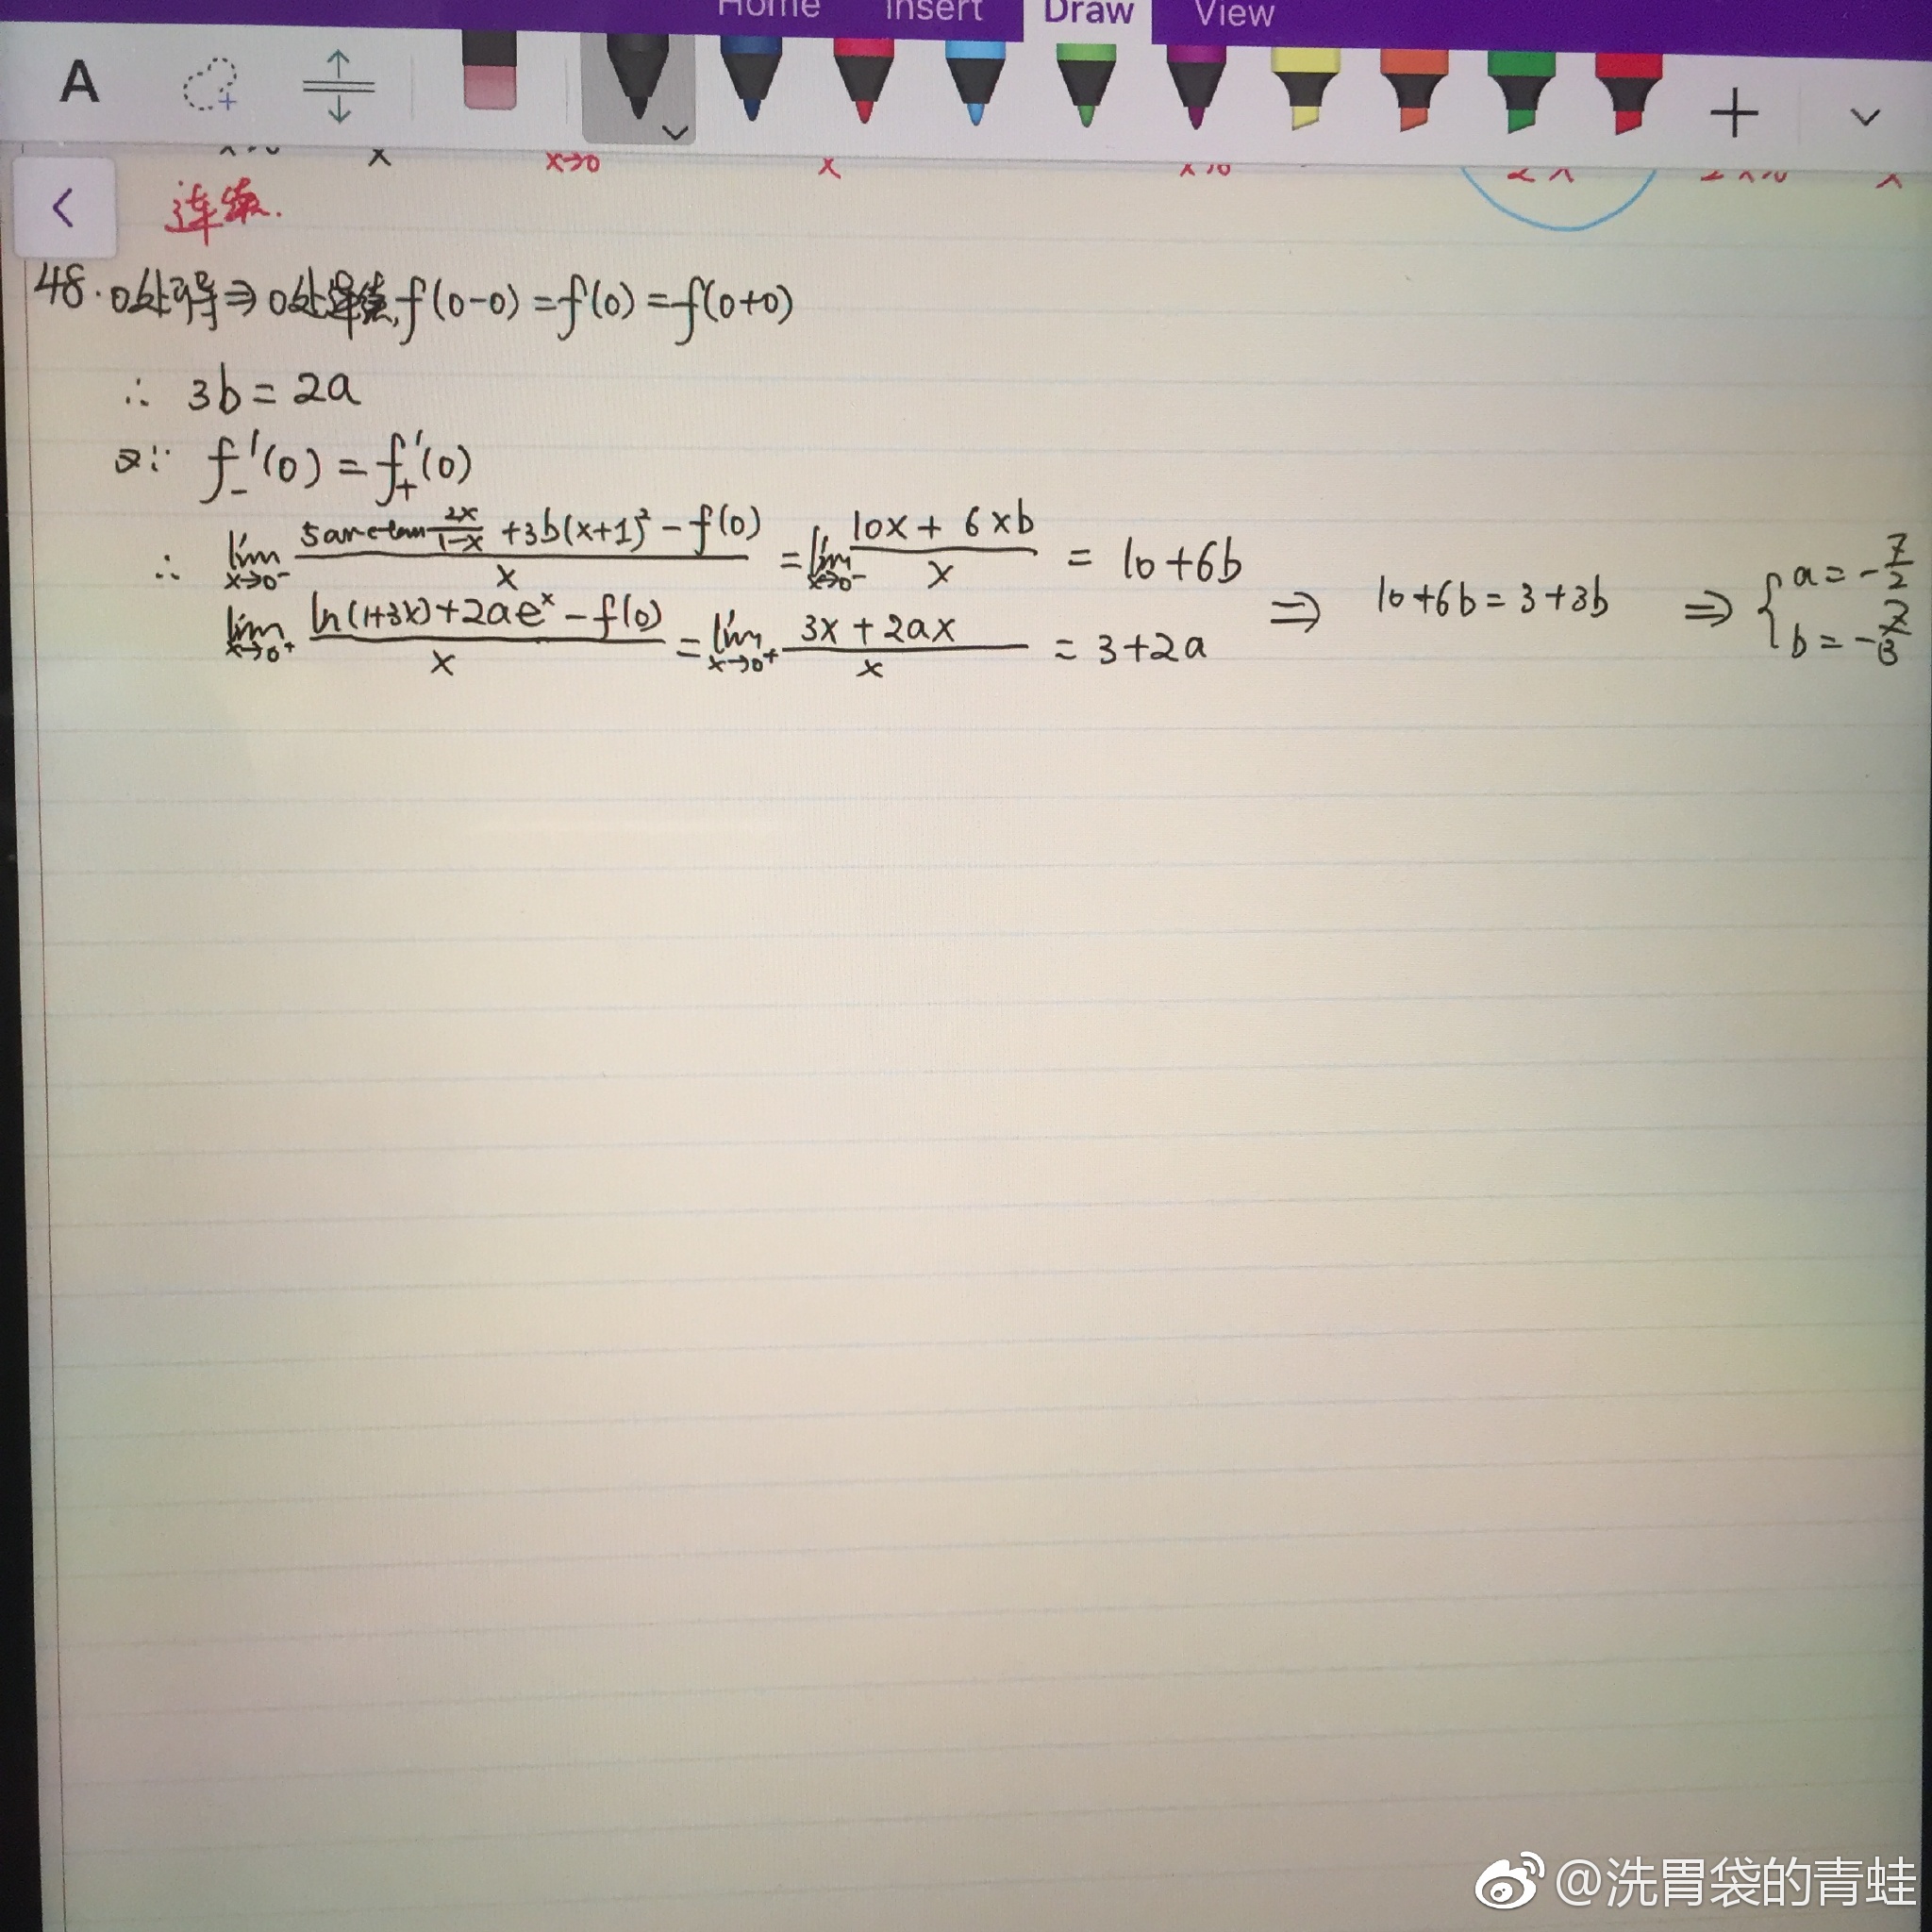 Home Insert Draw View
A
x→0 x x→0 x x→0 2x 2 x→0 x
连续.
48. 0处可导⇒0处连续, f(0-0)=f(0)=f(0+0)
∴ 3b=2a
又∵ f₋'(0)=f₊'(0)
∴ lim x→0⁻ (5arctan 2x/(1-x) +3b(x+1)²-f(0))/x = lim x→0⁻ (10x+6xb)/x = 10+6b
lim x→0⁺ (ln(1+3x)+2aeˣ-f(0))/x = lim x→0⁺ (3x+2ax)/x = 3+2a
⇒ 10+6b=3+3b ⇒ { a=-7/2 b=-7/3
@洗胃袋的青蛙